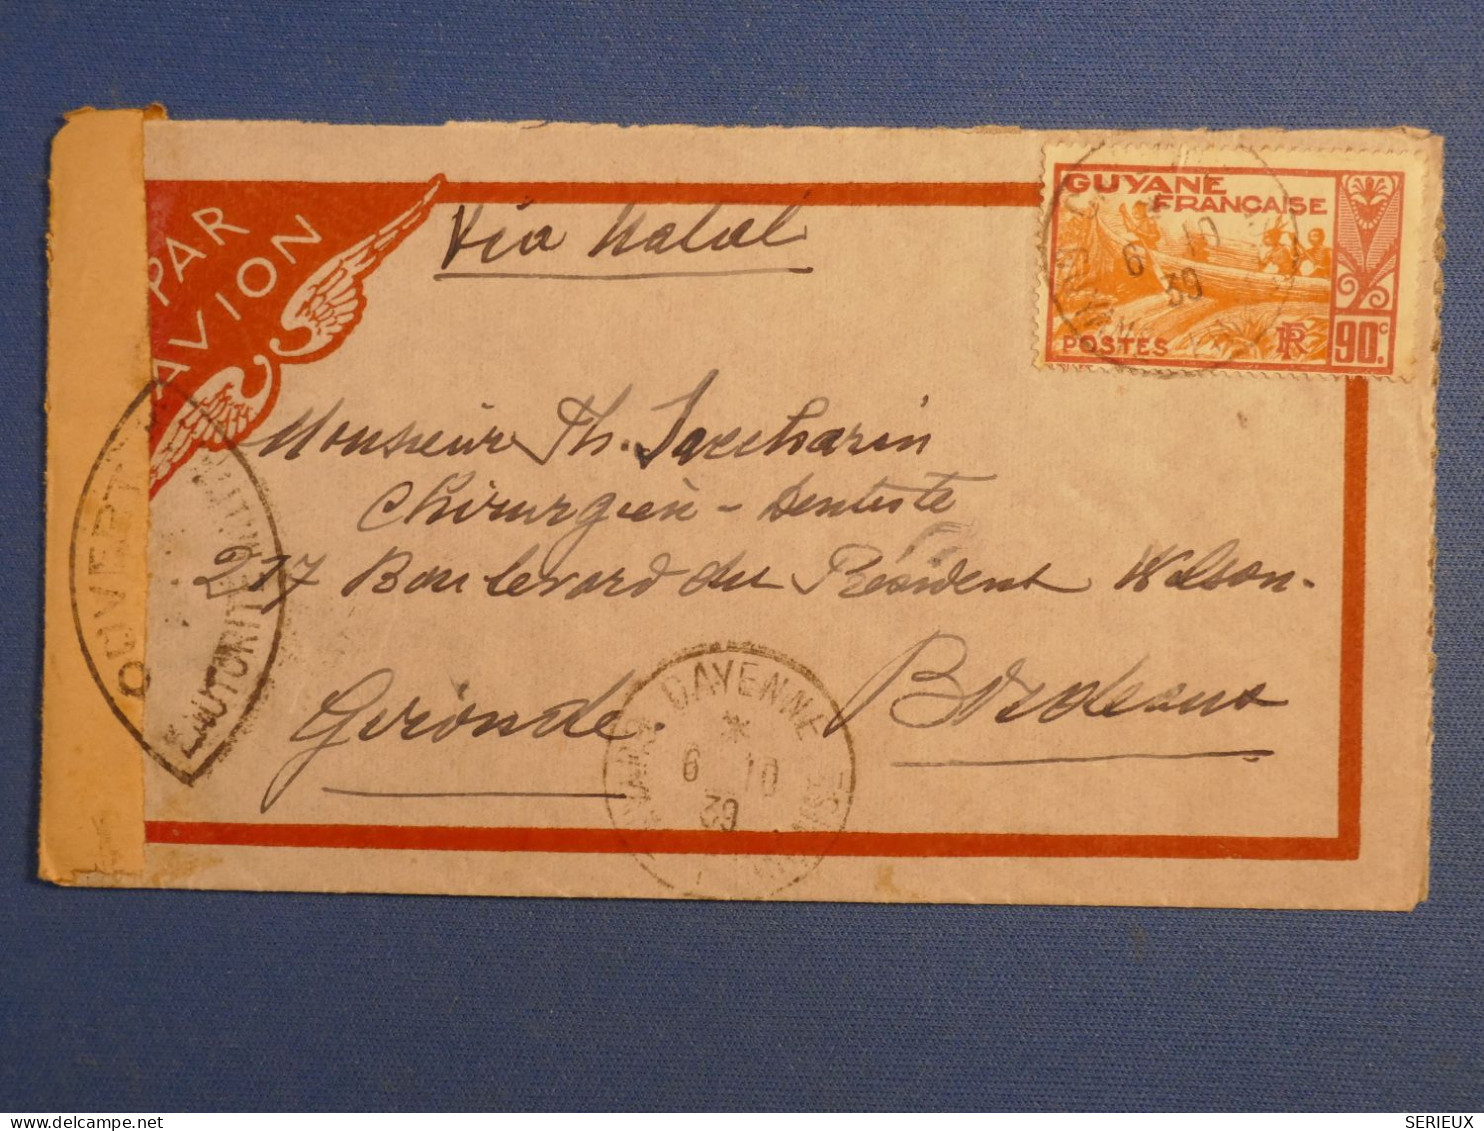 PAR
AVION
Via Natal
GUYANE
FRANÇAISE
POSTES
RF
90c.
6 10
39
Monsieur Th. Saccharin
Chirurgien-Dentiste
217 Boulevard du Président Wilson.
Bordeaux
Gironde.
OUVERT
L'AUTORITÉ MILITAIRE
CAYENNE
6 10
39
SERIEUX